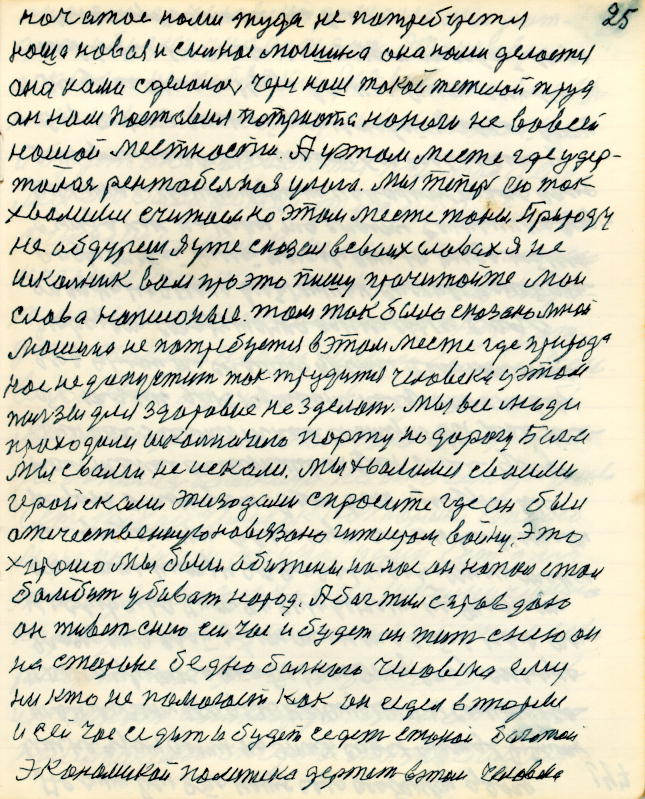 25
начатое нами туда не потребуется
наша новая и сильное машина она нами делается
она нами сделана, через наш такой тежелой труд
он нам поставил потриота нашего не вовсей
нашой местности. А у этом месте где удер-
жалая рентабельная улога. Мы теперь ею так
хвалимся считаем но этом месте тоны. Природу
не обдуриш я уже сказал всваих словах я не
школник вам про это пишу прочитайте мои
слова написоные. там так было сказано мной
машина не потребуется в этом месте где природа
нас не допустит так трудится человека у этом
ползы для здоровие не зделат. Мы все люди
проходили школничего парту но дорогу Бога
мы свами не искали. Мы хвалимся своими
геройсками эпизодами спросите где он был
отечественную навязано гитлером войну. Это
хорошо мы были обижены на нас он напал стал
бомбит убиват народ. А бог жил справдою
он живет снею сей час и будет он жит снею он
на стороне бедно болного человека ему
ни кто не помогает как он сидел в тюрме
и сей час седит и будет седет стокой богатой
Экономикой политика держет в этом человека